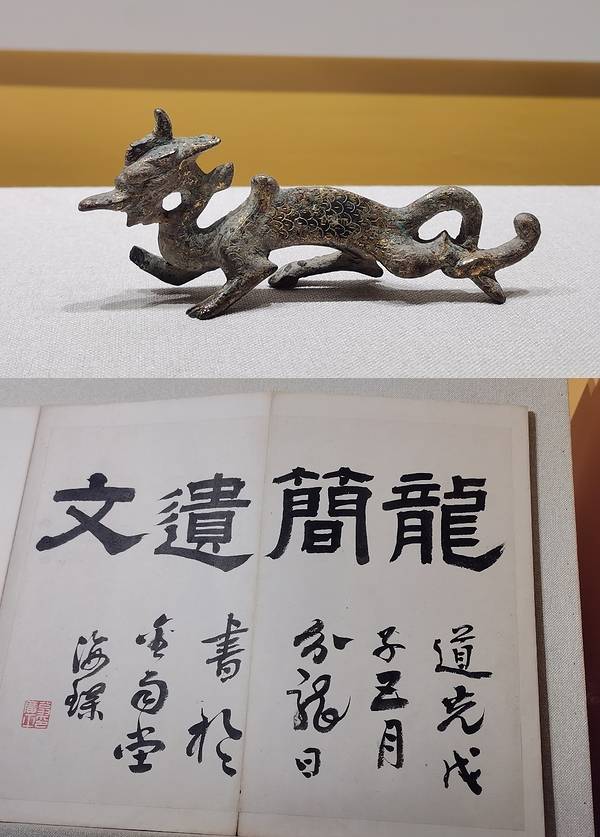 龍簡遺文
道光戊
子五月
分龍日
書於
堂
海